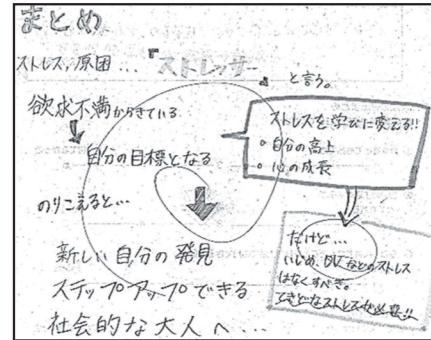 まとめ
ストレス,原因…『ストレッサー』と言う。
欲求不満からきている
自分の目標となる
のりこえると…
新しい自分の発見
ステップアップできる
社会的な大人へ…
ストレスを学びに変える!!
・自分の高上
・心の成長
だけど…
いじめ、DVなどのストレス
はなくすべき。
てきどなストレスが必要!!